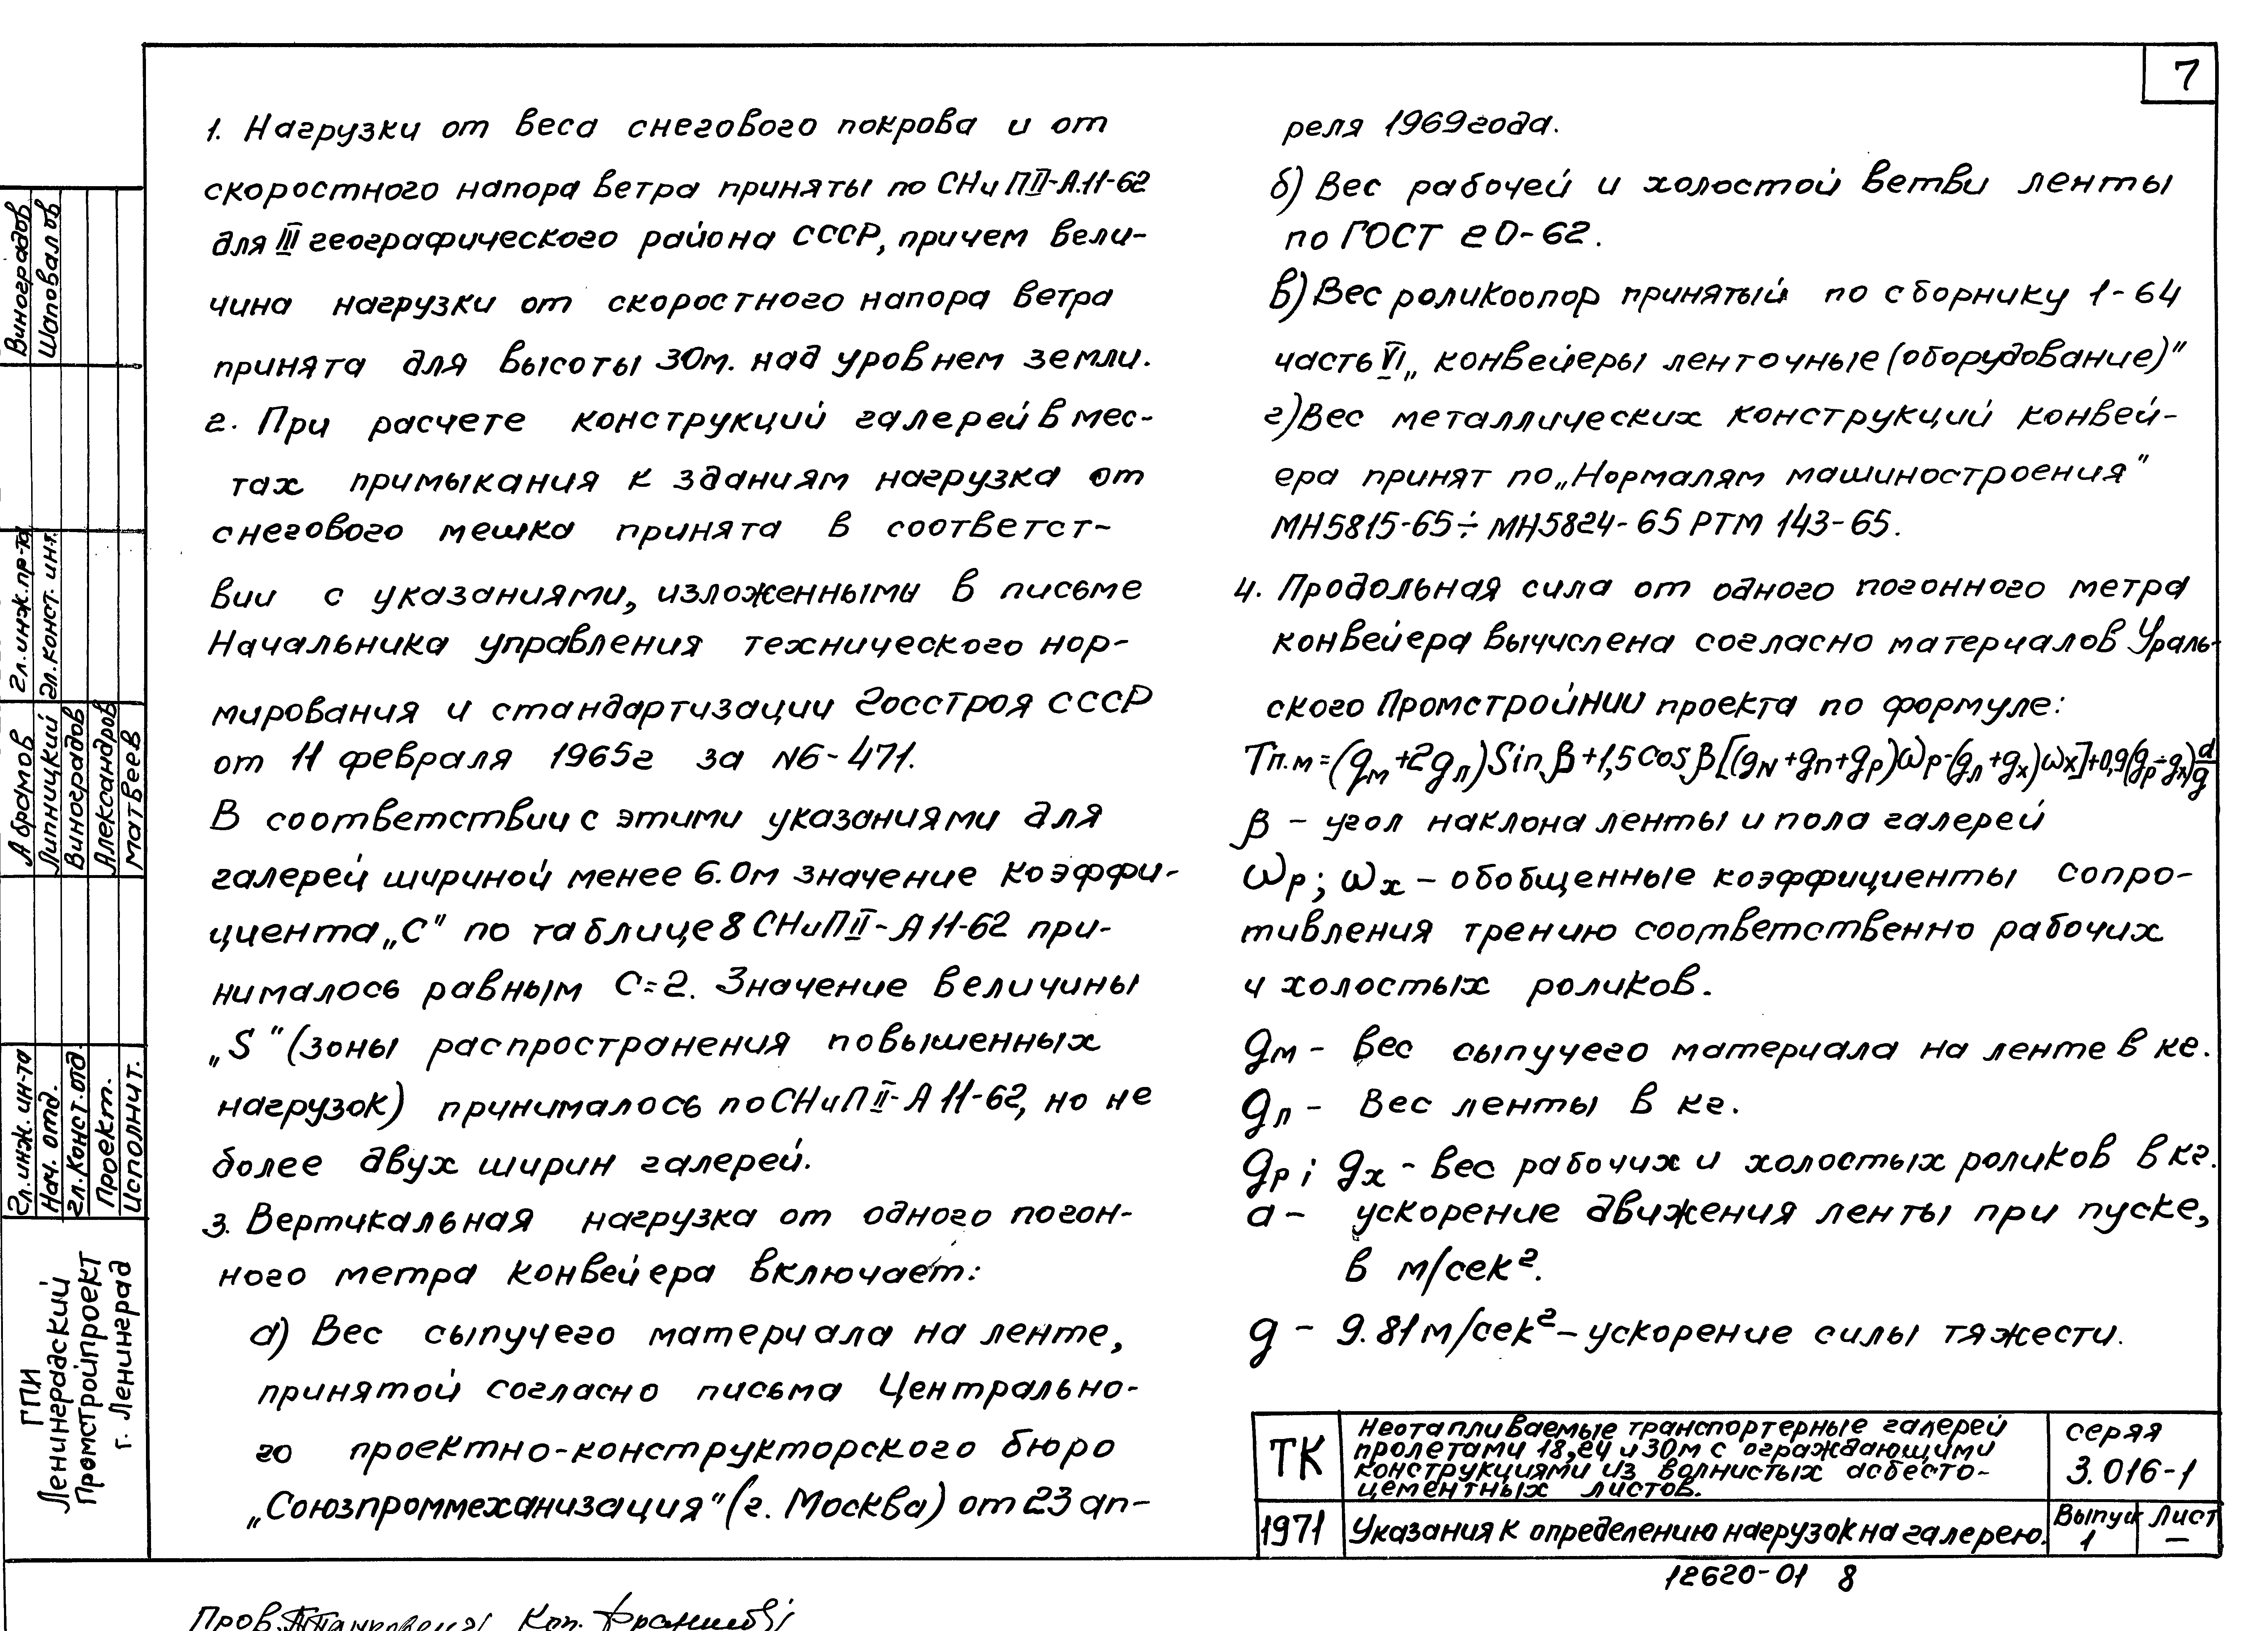 7
1. Нагрузки от веса снегового покрова и от
скоростного напора ветра приняты по СНиП II-А.11-62
для III географического района СССР, причем вели-
чина нагрузки от скоростного напора ветра
принята для высоты 30м. над уровнем земли.
2. При расчете конструкций галерей в мес-
тах примыкания к зданиям нагрузка от
снегового мешка принята в соответст-
вии с указаниями, изложенными в письме
Начальника управления технического нор-
мирования и стандартизации Госстроя СССР
от 11 февраля 1965г за N6-471.
В соответствии с этими указаниями для
галерей шириной менее 6.0м значение коэффи-
циента „С" по таблице 8 СНиП II-А 11-62 при-
нималось равным С=2. Значение величины
„S" (зоны распространения повышенных
нагрузок) принималось по СНиП II-А 11-62, но не
более двух ширин галерей.
3. Вертикальная нагрузка от одного погон-
ного метра конвейера включает:
а) Вес сыпучего материала на ленте,
принятой согласно письма Центрально-
го проектно-конструкторского бюро
„Союзпроммеханизация" (г. Москва) от 23 ап-
реля 1969года.
б) Вес рабочей и холостой ветви ленты
по ГОСТ 20-62.
в) Вес роликоопор принятый по сборнику 1-64
часть VI „конвейеры ленточные (оборудование)"
г) Вес металлических конструкций конвей-
ера принят по „Нормалям машиностроения"
МН5815-65÷МН5824-65 РТМ 143-65.
4. Продольная сила от одного погонного метра
конвейера вычислена согласно материалов Ураль-
ского ПромстройНИИ проекта по формуле:
Тп.м=(gм+2gл)Sin β+1,5 cos β[(gм+gп+gр)ωр-(gл+gх)ωх]+0,9(gр÷gх)a/g
β - угол наклона ленты и пола галерей
ωр; ωх - обобщенные коэффициенты сопро-
тивления трению соответственно рабочих
и холостых роликов.
gм - вес сыпучего материала на ленте в кг.
gл - Вес ленты в кг.
gр; gх - вес рабочих и холостых роликов в кг.
а - ускорение движения ленты при пуске,
в м/сек².
g - 9.81 м/сек² - ускорение силы тяжести.
ТК
Неотапливаемые транспортерные галерей
пролетами 18,24 и 30м с ограждающими
конструкциями из волнистых асбесто-
цементных листов.
серяя
3.016-1
1971
Указания к определению нагрузок на галерею.
Выпуск
1
Лист
—
12620-01 8
Виноградов
Шаповалов
гл.инж.пр-та
гл.конст.инт.
Абрамов
Липницкий
Виноградов
Александров
Матвеев
Гл.инж.ин-та
Нач. отд.
Гл.Конст.отд.
Проект.
Исполнит.
ГПИ
Ленинградский
Промстройпроект
г. Ленинград
Пров.
Коп.